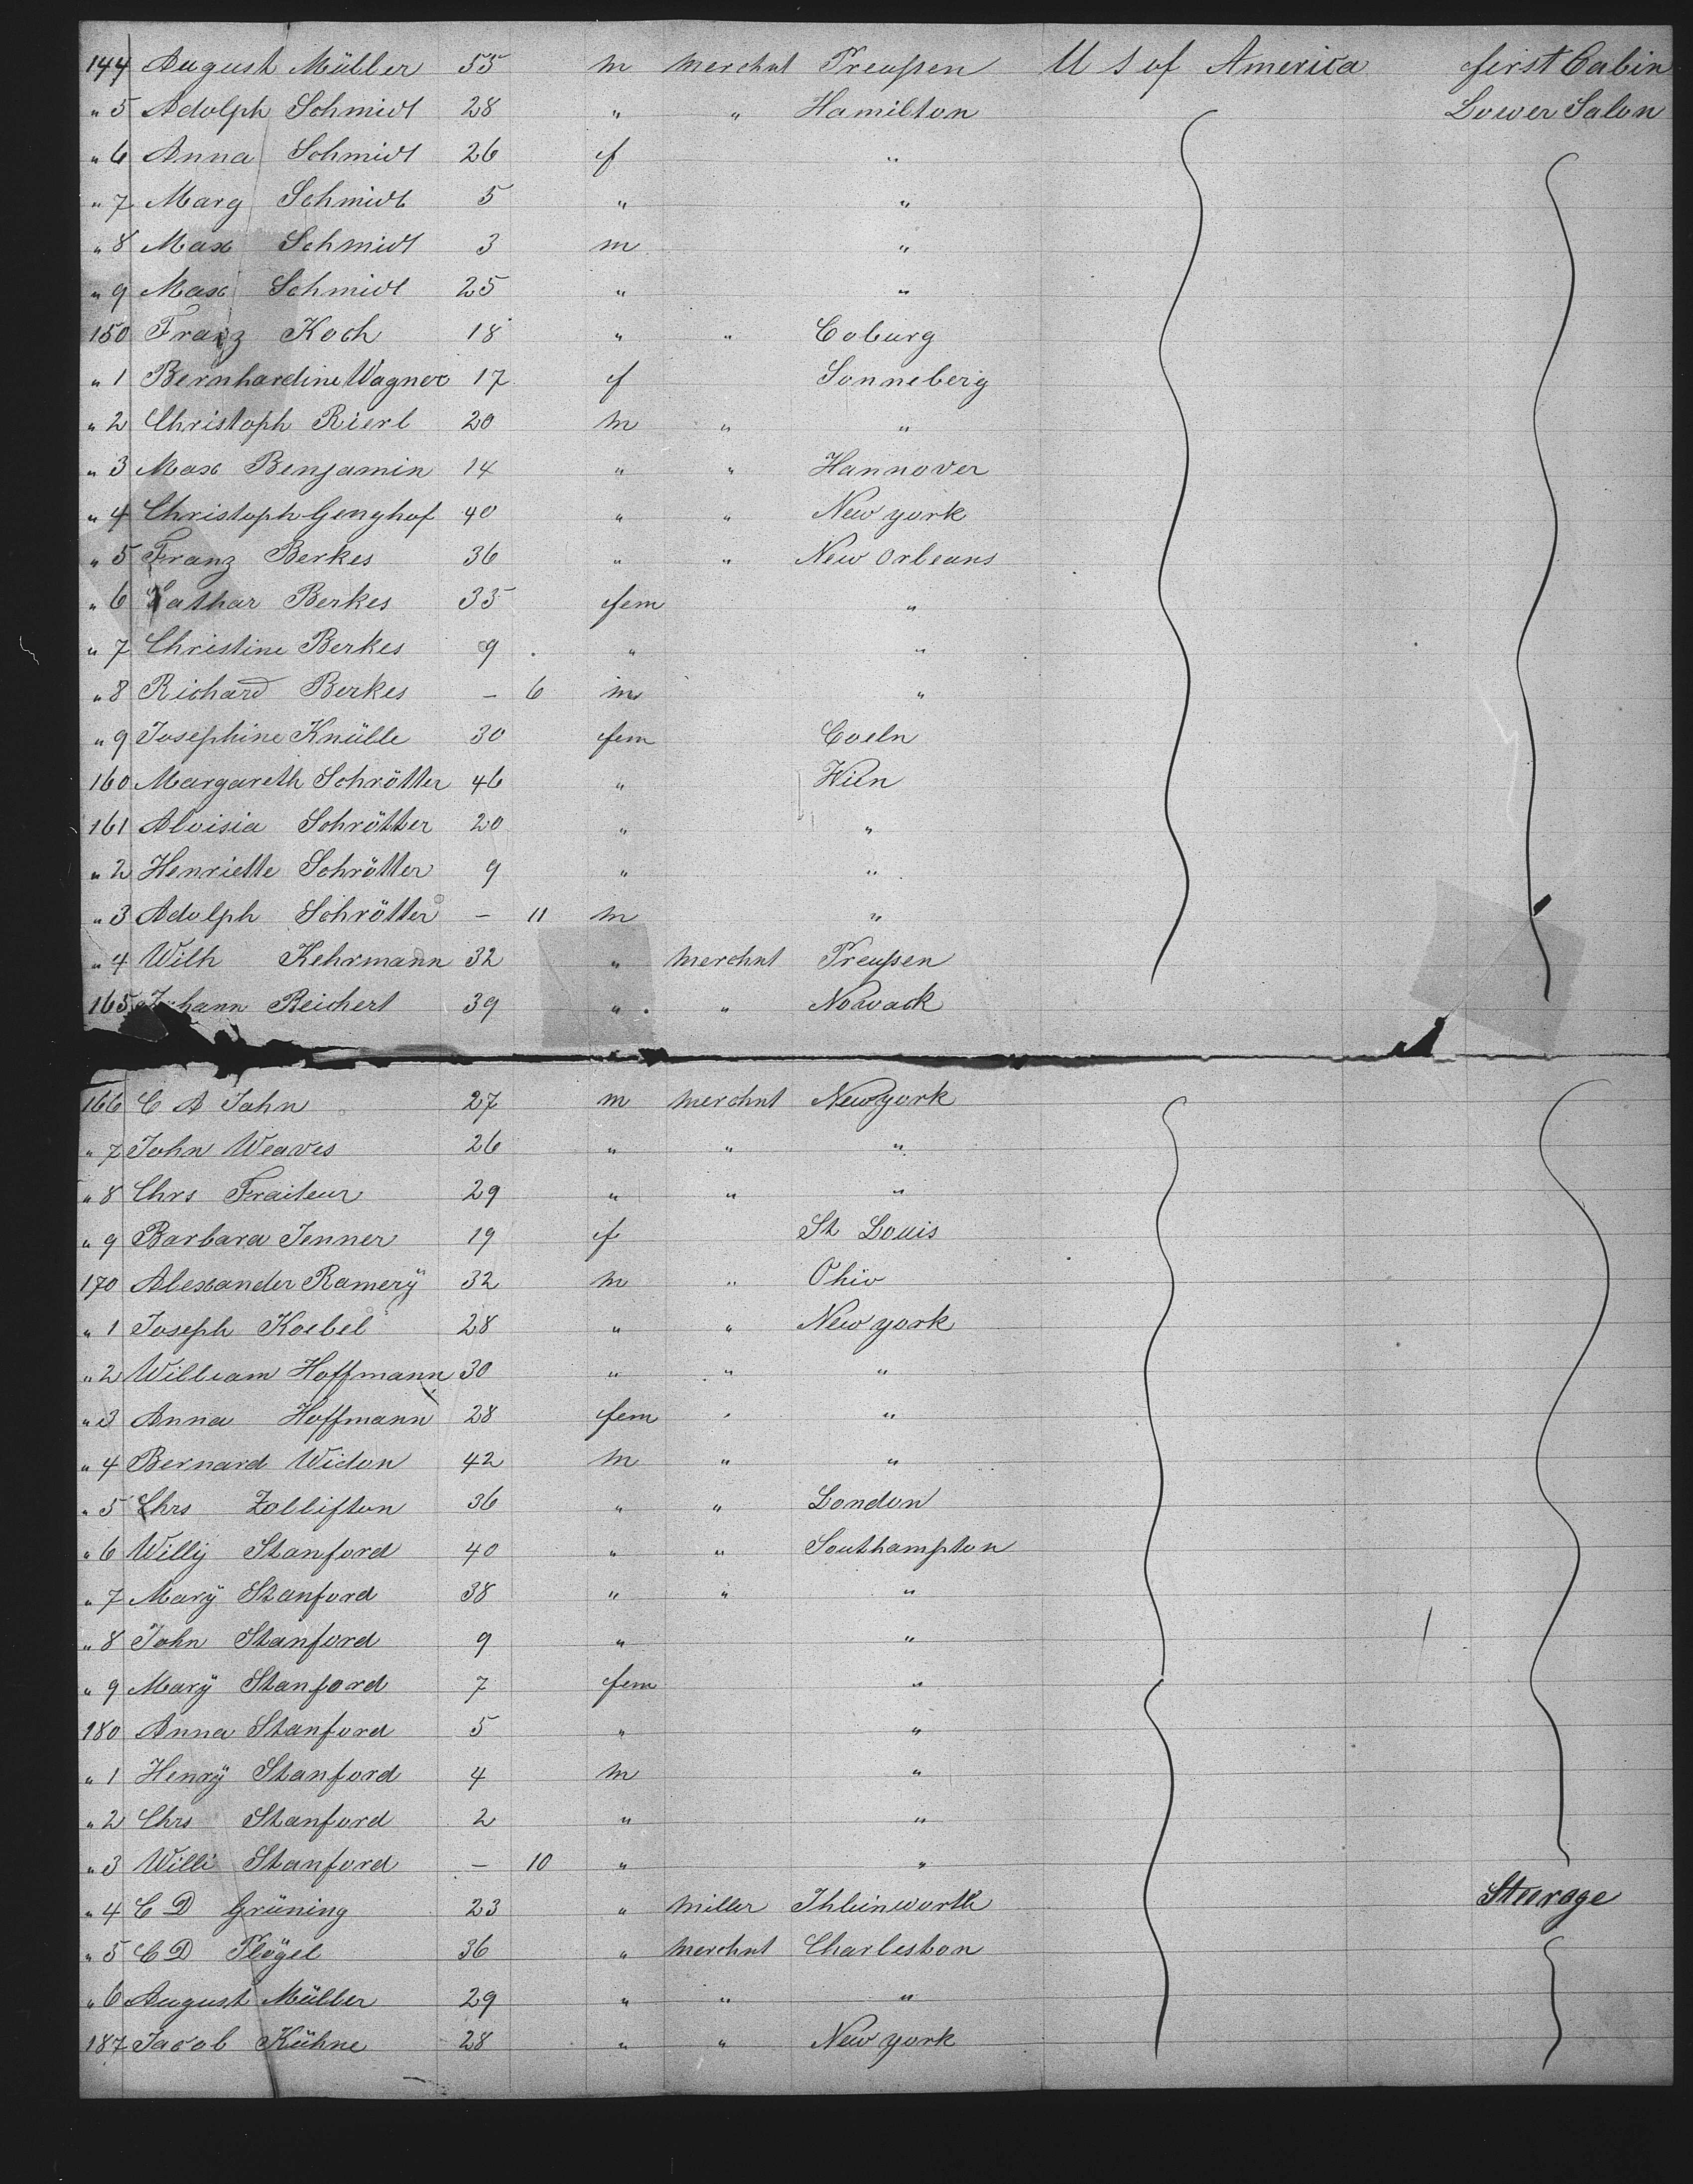 144 August Müller 55 m Merchnt Preußen U S of America first Cabin
" 5 Adolph Schmidt 28 " " Hamilton Lower Salon
" 6 Anna Schmidt 26 f "
" 7 Marg Schmidt 5 " "
" 8 Max Schmidt 3 m "
" 9 Max Schmidt 25 " "
150 Franz Koch 18 " " Coburg
" 1 Bernhardine Wagner 17 f Sonneberg
" 2 Christoph Rierl 20 m " "
" 3 Max Benjamin 14 " " Hannover
" 4 Christoph Genghof 40 " " New york
" 5 Franz Berkes 36 " " New Orleans
" 6 Berkes 35 fem "
" 7 Christine Berkes 9 " "
" 8 Richard Berkes – 6 m "
" 9 Josephine Knülle 30 fem Coeln
160 Margareth Schrötter 46 " Wien
161 Aloisia Schrötter 20 " "
" 2 Henriette Schrötter 9 " "
" 3 Adolph Schrötter – 11 m "
" 4 Wilh Kehrmann 32 " Merchnt Preußen
165 Johann Reichert 39 " " Nowack
166 C A Jahn 27 m Merchnt New york
" 7 John Weaves 26 " " "
" 8 Chrs Fraiteur 29 " " "
" 9 Barbara Jenner 19 f St Louis
170 Alexander Ramerÿ 32 m " Ohio
" 1 Joseph Koebel 28 " " New york
" 2 William Hoffmann 30 " " "
" 3 Anna Hoffmann 28 fem " "
" 4 Bernard Widon 42 m " "
" 5 Chrs Zollifton 36 " " London
" 6 Willÿ Stanford 40 " " Southampton
" 7 Marÿ Stanford 38 " " "
" 8 John Stanford 9 " "
" 9 Marÿ Stanford 7 fem "
180 Anna Stanford 5 " "
" 1 Henrÿ Stanford 4 m "
" 2 Chrs Stanford 2 " "
" 3 Willi Stanford – 10 " "
" 4 C D Grüning 23 " Miller Ihlienworth Steerage
" 5 C D Plögel 36 " Merchnt Charleston
" 6 August Müller 29 " " "
187 Jacob Kühne 28 " " New york